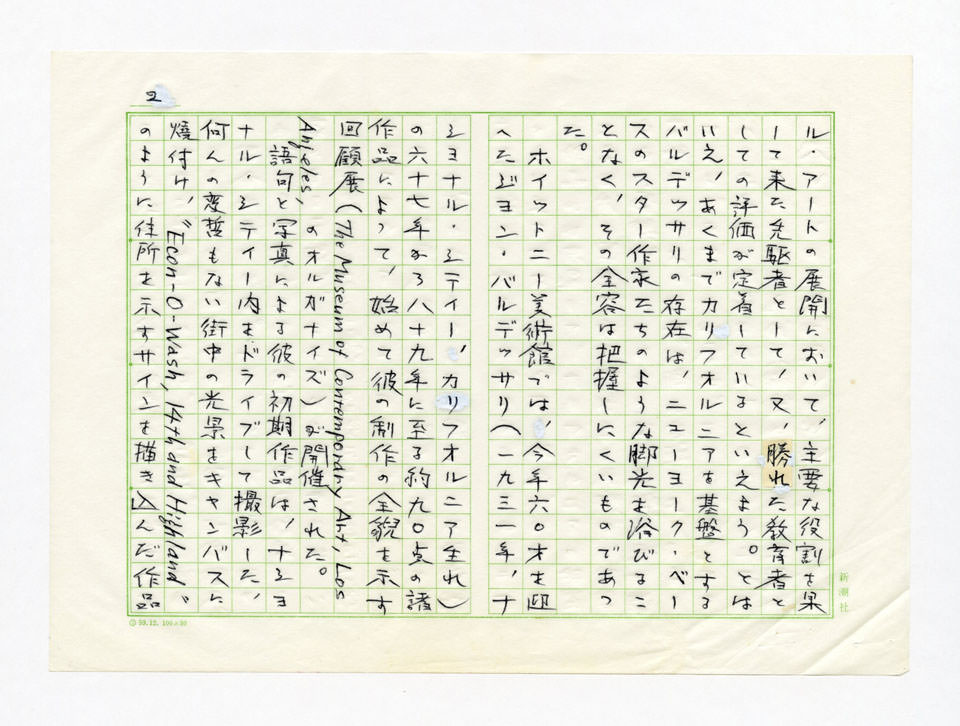 2
ル・アートの展開において、主要な役割を果
して来た先駆者として、又、勝れた教育者と
しての評価が定着しているといえよう。とは
いえ、あくまでカリフォルニアを基盤とする
バルデッサリの存在は、ニューヨーク・ベー
スのスター作家たちのような脚光を浴びるこ
となく、その全容は把握しにくいものであっ
た。
ホイットニー美術館では、今年六〇才を迎
へたジョン・バルデッサリ(一九三一年、ナ
ショナル・シティー、カリフォルニア生れ)
の六十七年から八十九年に至る約九〇点の諸
作品によって、始めて彼の制作の全貌を示す
回顧展(The Museum of Contemporary Art, Los
Angeles、のオルガナイズ)が開催された。
語句と写真による彼の初期作品は、ナショ
ナル・シティー内をドライブして撮影した、
何んの変哲もない街中の光景をキャンバスに
焼付け、"Econ-O-Wash, 14th and Highland"
のように住所を示すサインを描き込んだ作品
新潮社